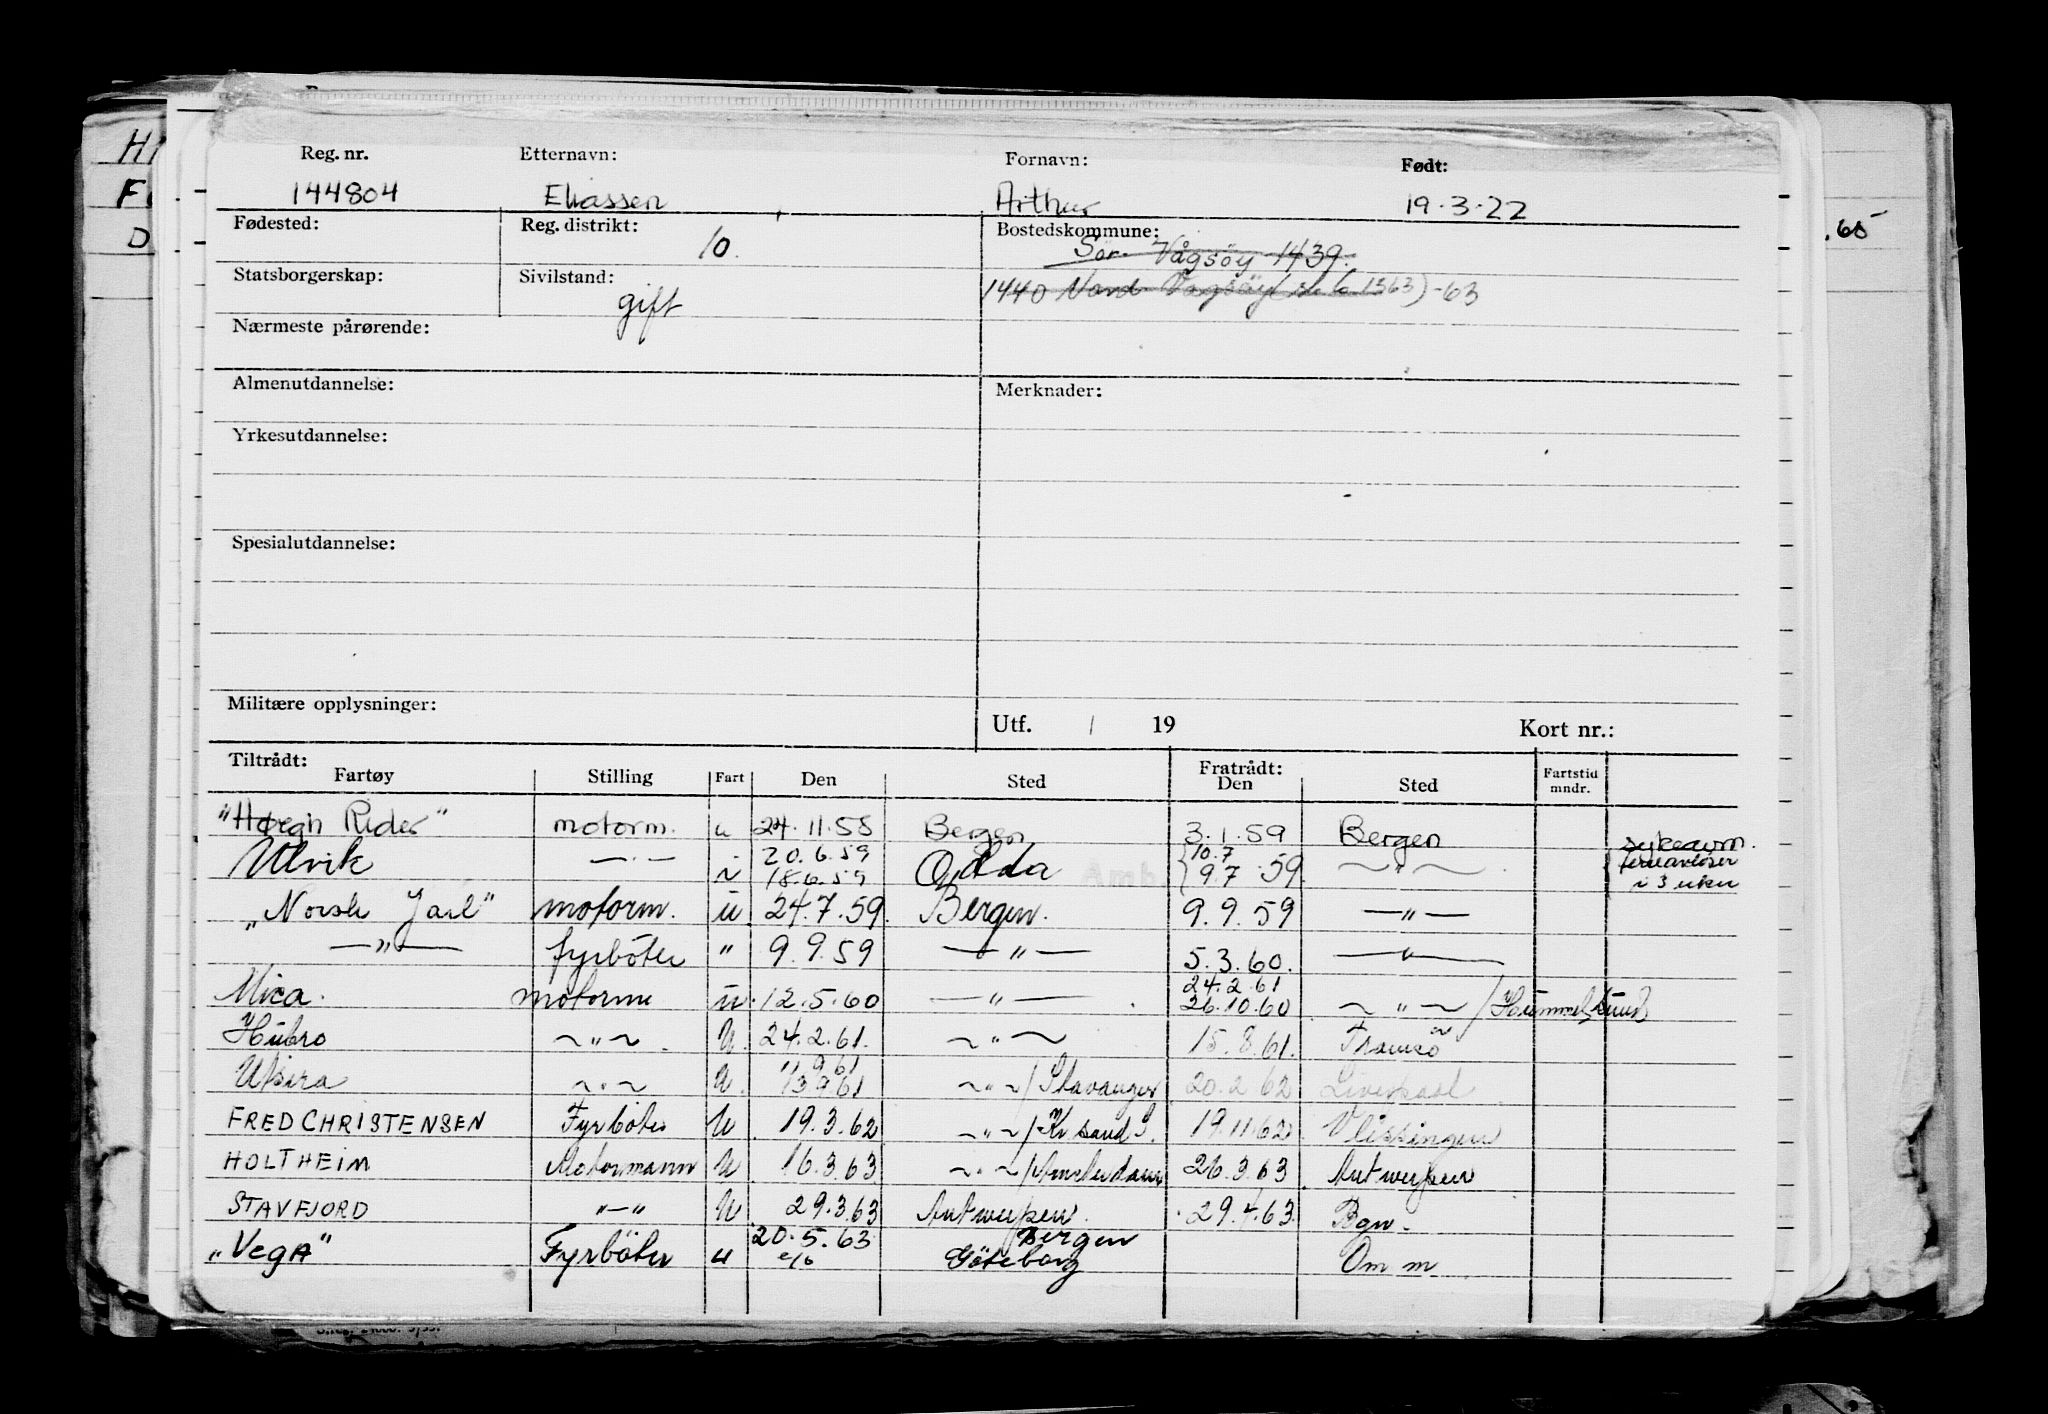 Reg. nr. Etternavn: Fornavn: Født:
144804 Eliassen Arthur 19.3.22
Fødested: Reg. distrikt: 10. Bostedskommune:
Sør- Vågsöy 1439.
Statsborgerskap: Sivilstand: gift
1440 Nord Vågsöy -63
Nærmeste pårørende:
Almenutdannelse: Merknader:
Yrkesutdannelse:
Spesialutdannelse:
Militære opplysninger:
Utf. / 19 Kort nr.:
Tiltrådt: Fratrådt:
Fartøy Stilling Fart Den Sted Den Sted Fartstid mndr.
Rider" motorm. u 24.11.58 Bergen 3.1.59 Bergen
20.6.59 10.7
Ulvik —·— ~ 18.6.59 Odda 9.7.59. ~"~ i 3 uker
"Norsk Jarl" motorm. u 24.7.59. Bergen. 9.9.59 —"—
—"— fyrböter " 9.9.59 —"— 5.3.60. —"—
24.2.61
Mica. motorm u. 12.5.60 —"— 26.10.60 ~"~ /
Hubro ~"~ U. 24.2.61. ~"~ 15.8.61. Tromsö
11.9.61
Utsira ~"~ U. 13.9.61 ~"~/Stavanger 20.2.62 Liverpool
FRED CHRISTENSEN Fyrböter U 19.3.62 ~"~/Kr sand S. 19.11.62 Vlissingen
HOLTHEIM Motormann U 16.3.63 ~"~/Amsterdam 26.3.63 Antwerpen
STAVFJORD "—" U 29.3.63 Antwerpen. 29.4.63. Bgn.
20.5.63 Bergen
"Vega" Fyrböter u Göteborg Om m